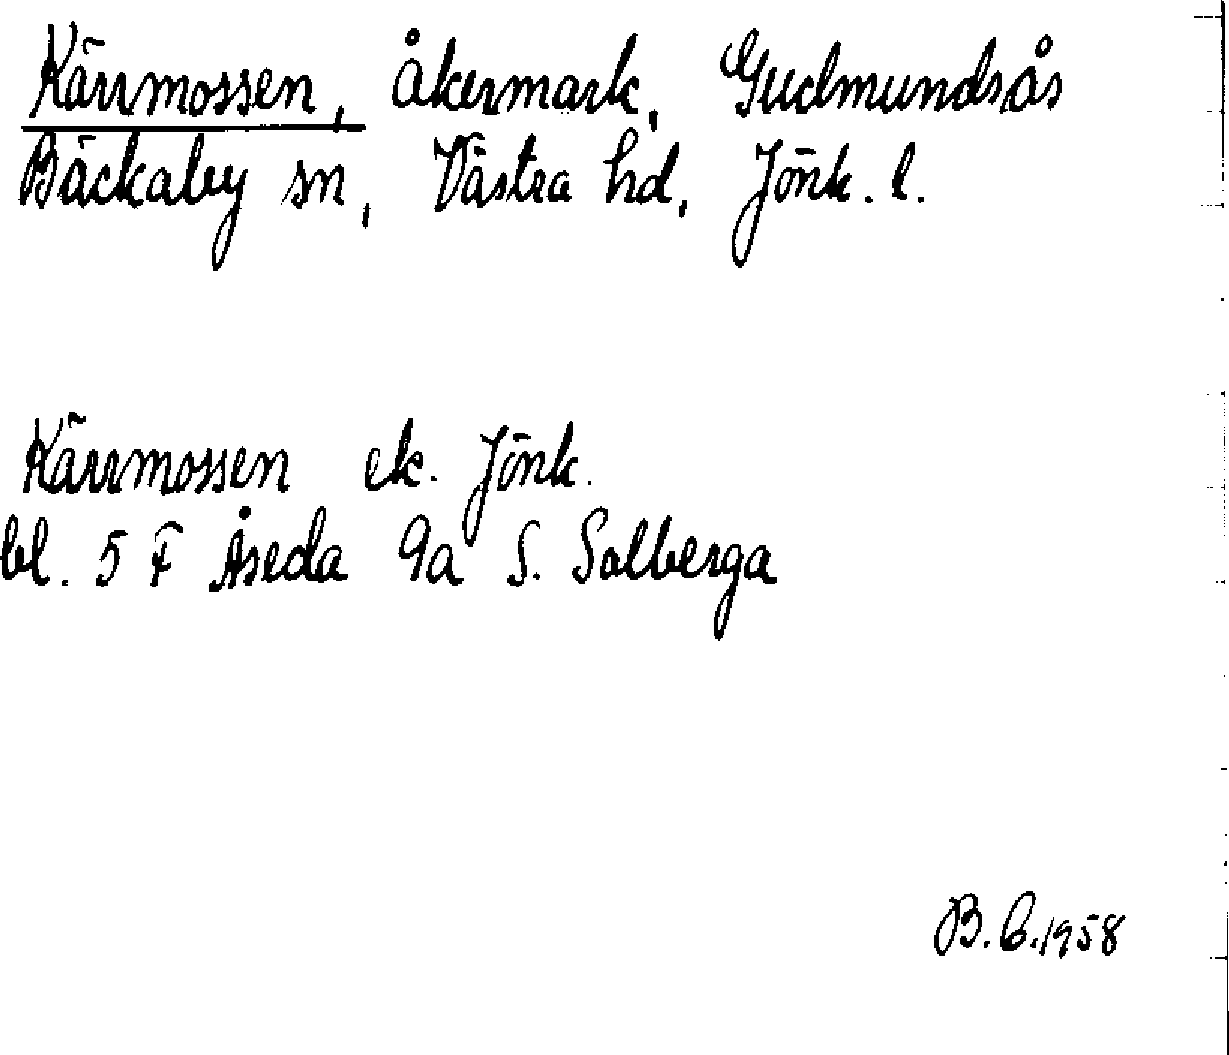 Kärrmossen, åkermark, Gudmundsås
Bäckaby sn, Västra hd, Jönk. l.
Kärrmossen ek. Jönk.
bl. 5 F Åseda 9a S. Solberga
B.C.1958